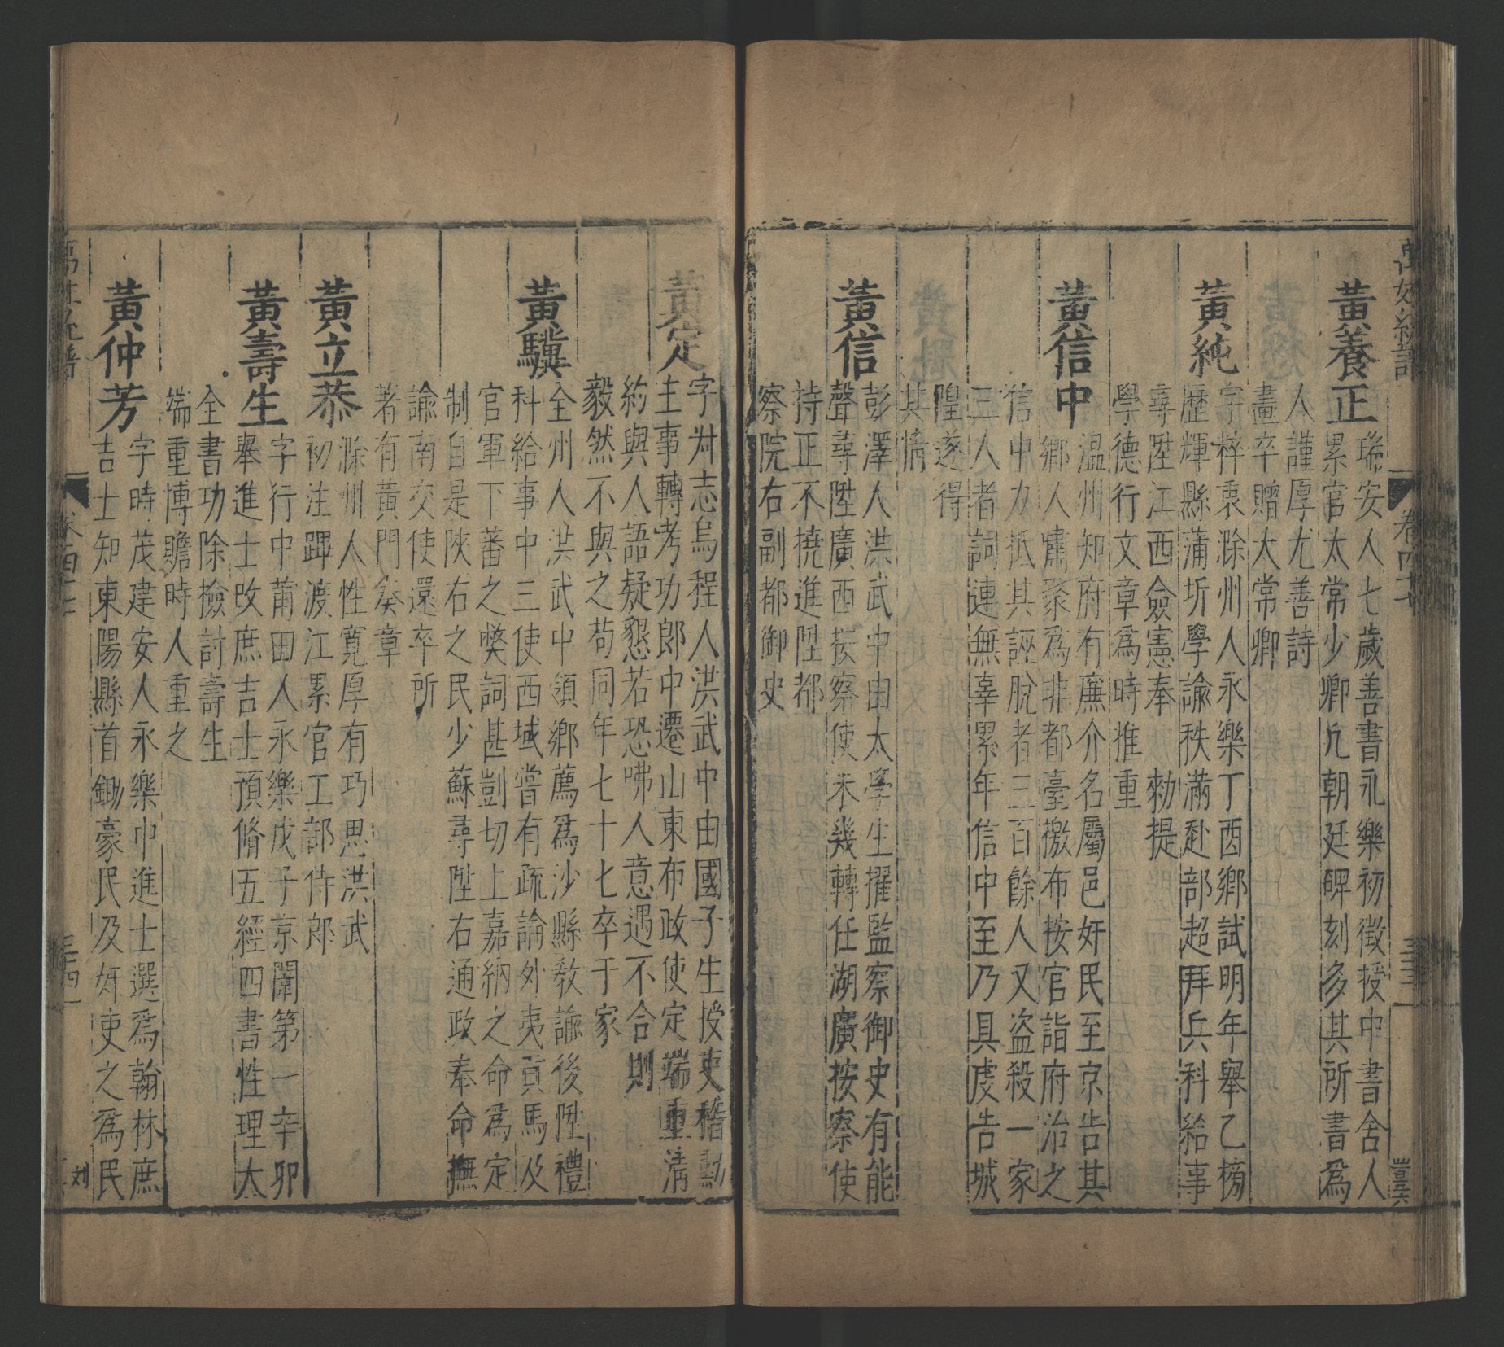 萬姓統譜
卷四十七
三十三
黃養正
瑞安人七歲善書永樂初徵授中書舍人
累官太常少卿凡朝廷碑刻多其所書爲
人謹厚尤善詩
畫卒贈大常卿
黃純
字梓秉滁州人永樂丁酉鄉試明年舉乙榜
歷輝縣蒲圻學諭秩滿赴部超拜兵科給事
尋陞江西僉憲奉 勑提
學德行文章爲時推重
黃信中
溫州知府有廉介名屬邑奸民至京告其
鄉人嘯聚爲非都臺檄布按官詣府治之
信中力抵其誣脫者三百餘人又盜殺一家
三人者詞連無辜累年信中至乃具虔告城
隍遂得
其情
黃信
彭澤人洪武中由太學生擢監察御史有能
聲尋陞廣西按察使未幾轉任湖廣按察使
持正不撓進陞都
察院右副都御史
黃定
字　志烏程人洪武中由國子生授吏稽勳
主事轉考功郎中遷山東布政使定端重清
約與人語疑懇若恐咈人意遇不合則
毅然不與之苟同年七十七卒于家
黃驥
全州人洪武中領鄉薦爲沙縣敎諭後陞禮
科給事中三使西域嘗有疏論外夷貢馬及
官軍下蕃之獘詞甚剴切上嘉納之命爲定
制自是陝右之民少蘇尋陞右通政奉命撫
諭南交使還卒所
著有黃門奏章
黃立恭
滁州人性寬厚有巧思洪武
初注蹕渡江累官工部侍郎
黃壽生
字行中莆田人永樂戊子京闈第一辛卯
舉進士改庶吉士預脩五經四書性理大
全書功除撿討壽生
端重博贍時人重之
黃仲芳
字時茂建安人永樂中進士選爲翰林庶
吉士知東陽縣首鋤豪民及奸吏之爲民
卷四十七
三十四
刘